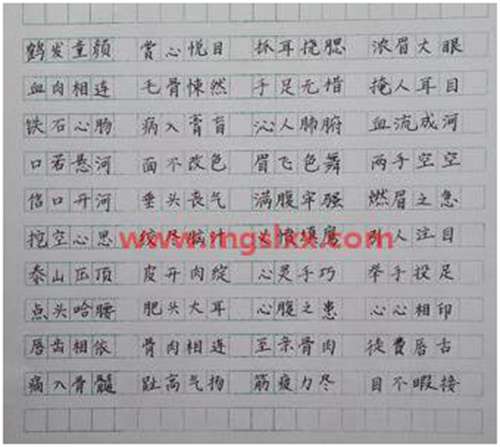 鹤发童颜 赏心悦目 抓耳挠腮 浓眉大眼
血肉相连 毛骨悚然 手足无措 掩人耳目
铁石心肠 病入膏肓 沁人肺腑 血流成河
口若悬河 面不改色 眉飞色舞 两手空空
信口开河 垂头丧气 满腹牢骚 燃眉之急
挖空心思 绞尽脑汁 义愤填膺 引人注目
泰山压顶 皮开肉绽 心灵手巧 举手投足
点头哈腰 肥头大耳 心腹之患 心心相印
唇齿相依 骨肉相连 至亲骨肉 徒费唇舌
痛入骨髓 趾高气扬 筋疲力尽 目不暇接